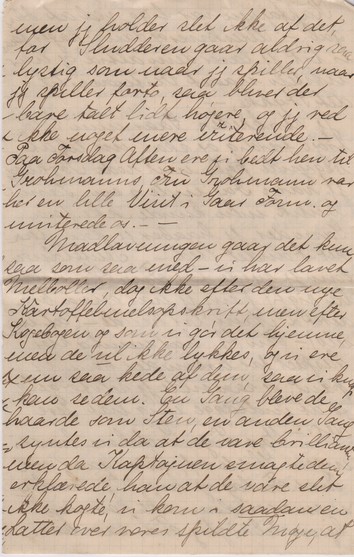 men jg holder slet ikke af det,
for Sludderen gaar aldrig saa
lystig som naar jg spiller, naar
jg spiller forte, saa bliver der
bare talt lidt højere, og jg ved
ikke noget mere iriterende. -
Paa Torsdag Aften ere vi bedt hen til
Grohmanns, Fru Grohmann var
her en lille Visit i Gaar Form. og
inviterede os. - -
Madlavningen gaar det kun
saa som saa med - vi har lavet
Melboller, dog ikke efter den nye
Kartoffelmelsopskrift, men efter
Kogebogen og som vi gør det hjemme,
men de vil ikke lykkes, og vi ere
saa kede af dem, saa vi
kan se dem. En Gang blev de
haarde som Sten, en anden Gang
syntes vi da at de vare brilliante
men da Kaptajnen smagte dem
erklærede han at de vare slet
ikke kogte, vi kom i saadan en
Latter over vores spildte Møje, at